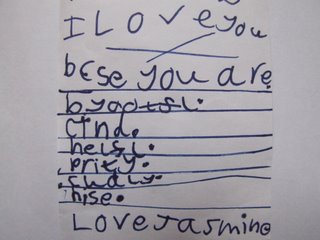 I LOVE you
bcse you are
byoptfl.
cind.
helsfl.
prity.
cudly.
nise.
Love Jasmine